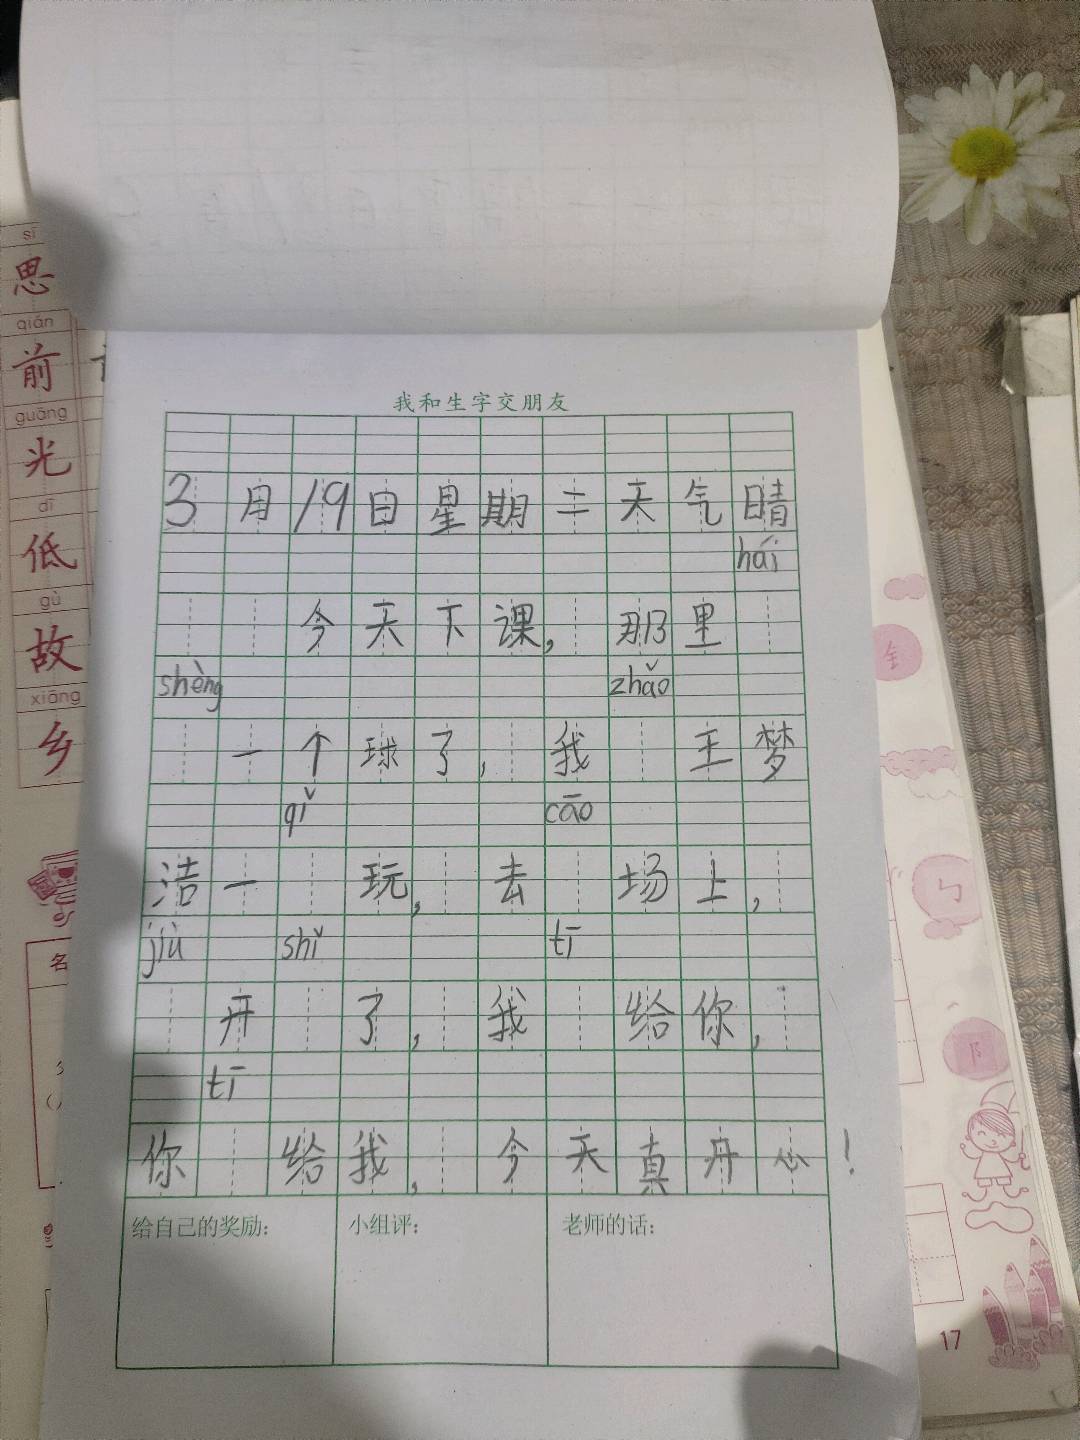 sī
思
qián
前
guāng
光
dī
低
gù
故
xiāng
乡
名
我和生字交朋友
3月19日星期二天气晴
hái
今天下课，那里
shèng zhǎo
一个球了，我 王梦
qǐ cāo
洁一 玩，去 场上，
jiù shǐ tī
开 了，我 给你，
tī
你 给我，今天真开心！
给自己的奖励：
小组评：
老师的话：
钅
ㄅ
阝
17